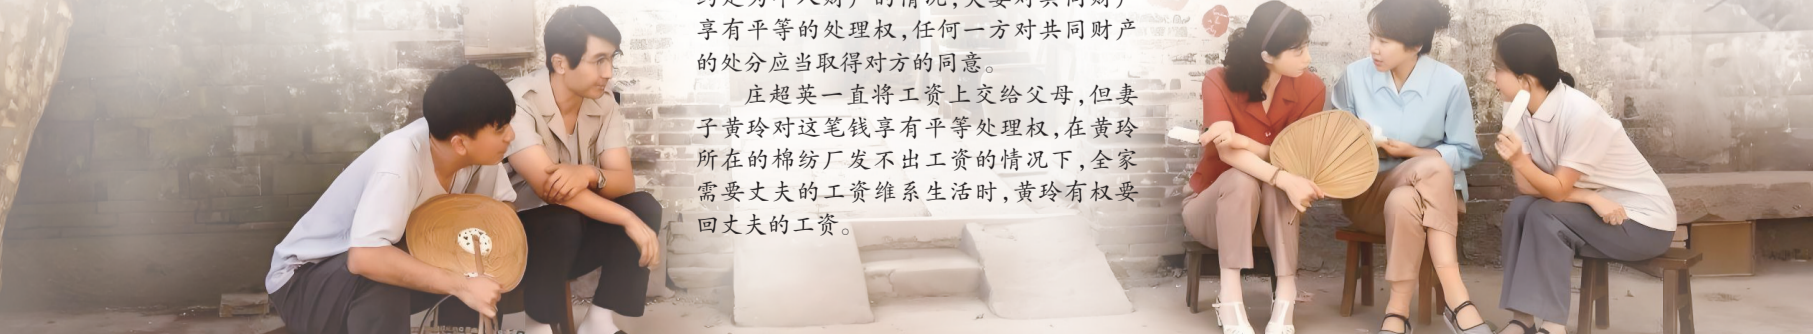 约定为个人财产的情况，夫妻对共同财产
享有平等的处理权，任何一方对共同财产
的处分应当取得对方的同意。
庄超英一直将工资上交给父母，但妻
子黄玲对这笔钱享有平等处理权，在黄玲
所在的棉纺厂发不出工资的情况下，全家
需要丈夫的工资维系生活时，黄玲有权要
回丈夫的工资。